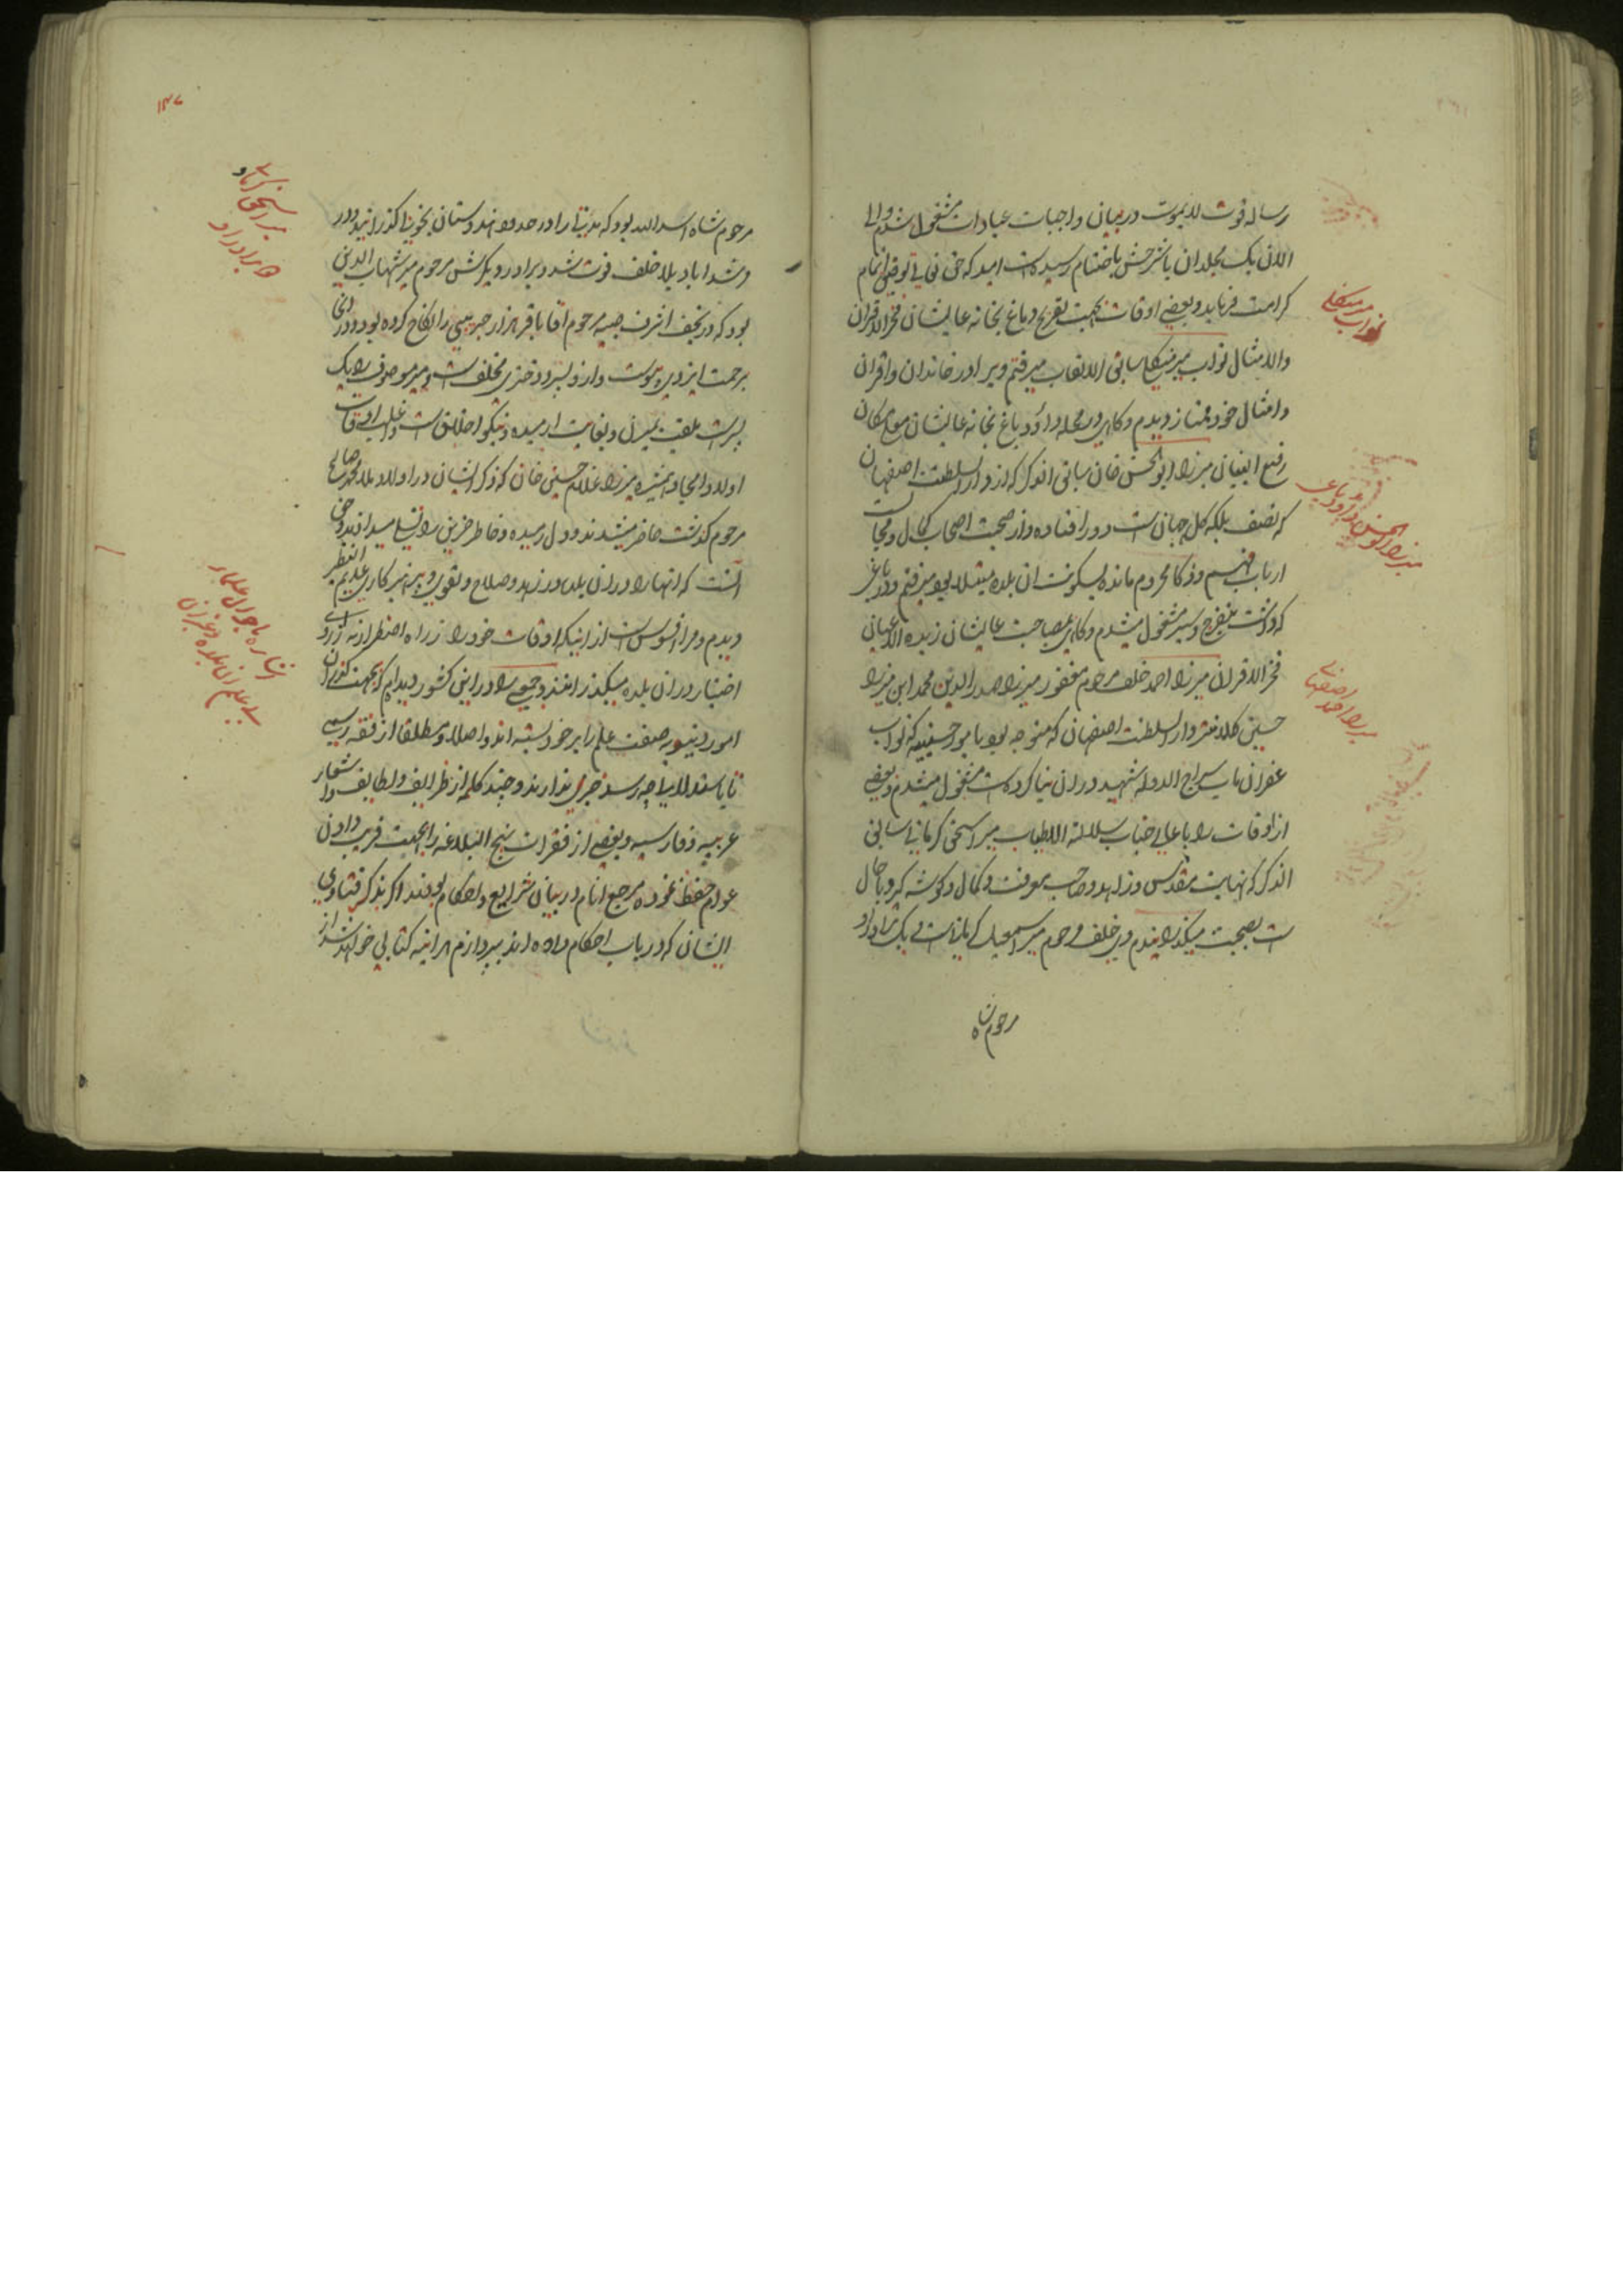 رساله قوت لایموت در بیان واجبات عبادات مشغول شدم و الی
الان یک مجلد آن با شرحش باختتام رسیده است امید که حق تعالی توفیق اتمام
کرامت فرماید و بعضی اوقات بجهت تفریح دماغ بخانه عالیشان فخر الاقران
والامثال نواب میر منگلی سابق الالقاب میرفتم و برادر خاندان و اقران
و امثال خود ممتاز دیدم و گاهی در محله داؤد باغ بخانه عالیشان معلی مکان
رفیع البنیان میرزا ابوالحسن خان سابق الذکر که از دار السلطنت اصفهان
که نصف بلکه کل جهان است دور افتاده و از صحبت اصحاب کمال و مجالست
ارباب فهم و ذکا محروم مانده بسکونت آن بلده مبتلا بود میرفتم و در باغی
که داشت بتفرج و سیر مشغول میشدم و گاهی بمصاحبت عالیشان زبده الاعیان
فخر الاقران میرزا احمد خلف مرحوم مغفور میرزا صدر الدین محمد ابن میرزا
حسین کلانتر دار السلطنت اصفهان که متوجه بود بامور حسینیه که نواب
غفران مآب سراج الدوله شهید در آن بنا کرده است مشغول میشدم و بعضی
از اوقات را با عالی جناب سلالة الاطیاب میر اسحق کرمانی سابق
الذکر که نهایت مقدس و زاهد و صاحب معرفت و کمال و گوشه گیر و با حال
است بصحبت میگذرانیدم وی خلف مرحوم میر اسمعیل کرمانی است و یک برادر او
مرحوم شاه
نواب میر منگلی
میرزا ابوالحسن داؤد باغی
میرزا احمد اصفهانی
۱۳۷
مرحوم شاه اسد الله بود که مدتی را در حدود هندوستان بخوبی گذرانید و در
مرشد اباد بلا خلف فوت شد و برادر دیگرش مرحوم میر شهاب الدین
بود که در نجف اشرف صبیه مرحوم آقا باقر هزار جریبی را نکاح کرده بود و در آنجا
برحمت ایزدی پیوست و از و پسر و دختری مخلف است و میر موصوف را یک
پسر است ملقب بمیرزا و بغایت ارمیده و نیکو اخلاق است و اغلب اوقات
اولاد امجاد همشیره میرزا غلام حسین خان که ذکر ایشان در اولاد ملا محمد صالح
مرحوم گذشت حاضر میشدند و دل رمیده و خاطر حزین را تسلی میدادند و حق
آنست که آنها را در آن بلده در زهد و صلاح و تقوی و پرهیزکاری عدیم النظیر
دیدم و مرا افسوس است از اینکه اوقات خود را از راه اضطرار نه از روی
اختیار در آن بلده میگذرانند و جمعی را در این کشور دیدم که بجهت گذران
امور دنیویه صفت علم را بر خود بسته اند و اصلا و مطلقا از فقه رسمی
تا باستدلالی چه رسد خبری ندارند و چند کلمه از ظرایف و لطایف و اشعار
عربیه و فارسیه و بعضی از فقرات نهج البلاغه را بجهت فریب دادن
عوام حفظ نموده مرجع انام در بیان شرایع و احکام بودند اگر بذکر فتاوی
ایشان که در باب احکام داده اند بپردازم هر آینه کتابی خواهد شد از
میر اسحق کرمانی و
برادران او
اشاره باحوال علماء
بی علم آن بلده و غیر آن